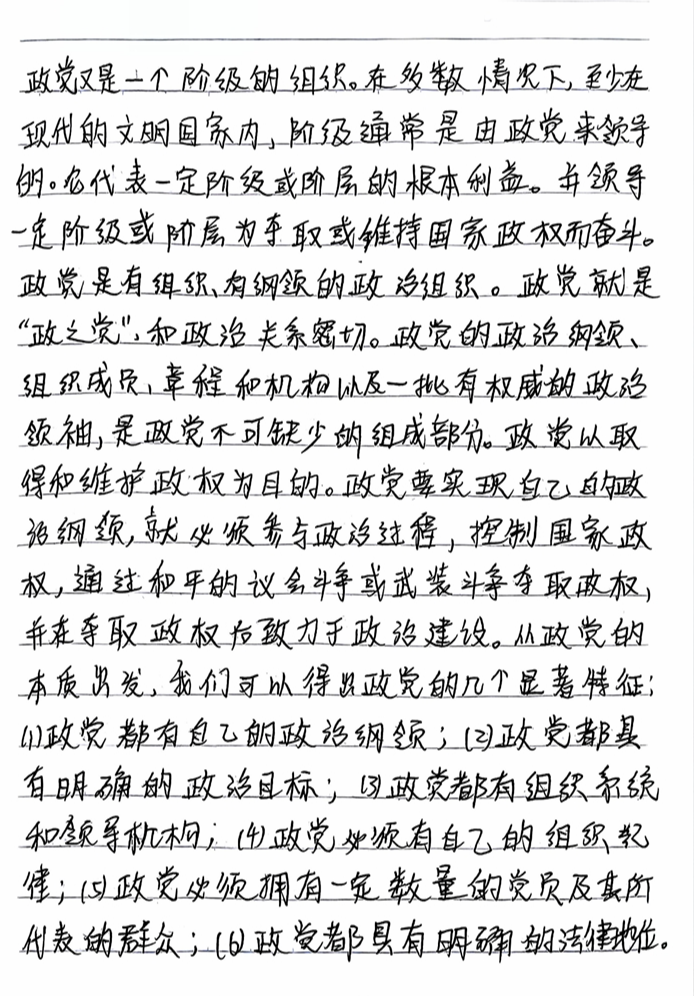 政党又是一个阶级的组织。在多数情况下,至少在
现代的文明国家内,阶级通常是由政党来领导
的。它代表一定阶级或阶层的根本利益。并领导
一定阶级或阶层为夺取或维持国家政权而奋斗。
政党是有组织、有纲领的政治组织。政党就是
“政之党”,和政治关系密切。政党的政治纲领、
组织成员、章程和机构以及一批有权威的政治
领袖,是政党不可缺少的组成部分。政党以取
得和维护政权为目的。政党要实现自己的政
治纲领,就必须参与政治过程,控制国家政
权,通过和平的议会斗争或武装斗争夺取政权,
并在夺取政权后致力于政治建设。从政党的
本质出发,我们可以得出政党的几个显著特征:
(1)政党都有自己的政治纲领;(2)政党都具
有明确的政治目标;(3)政党都有组织系统
和领导机构;(4)政党必须有自己的组织纪
律;(5)政党必须拥有一定数量的党员及其所
代表的群众;(6)政党都具有明确的法律地位。